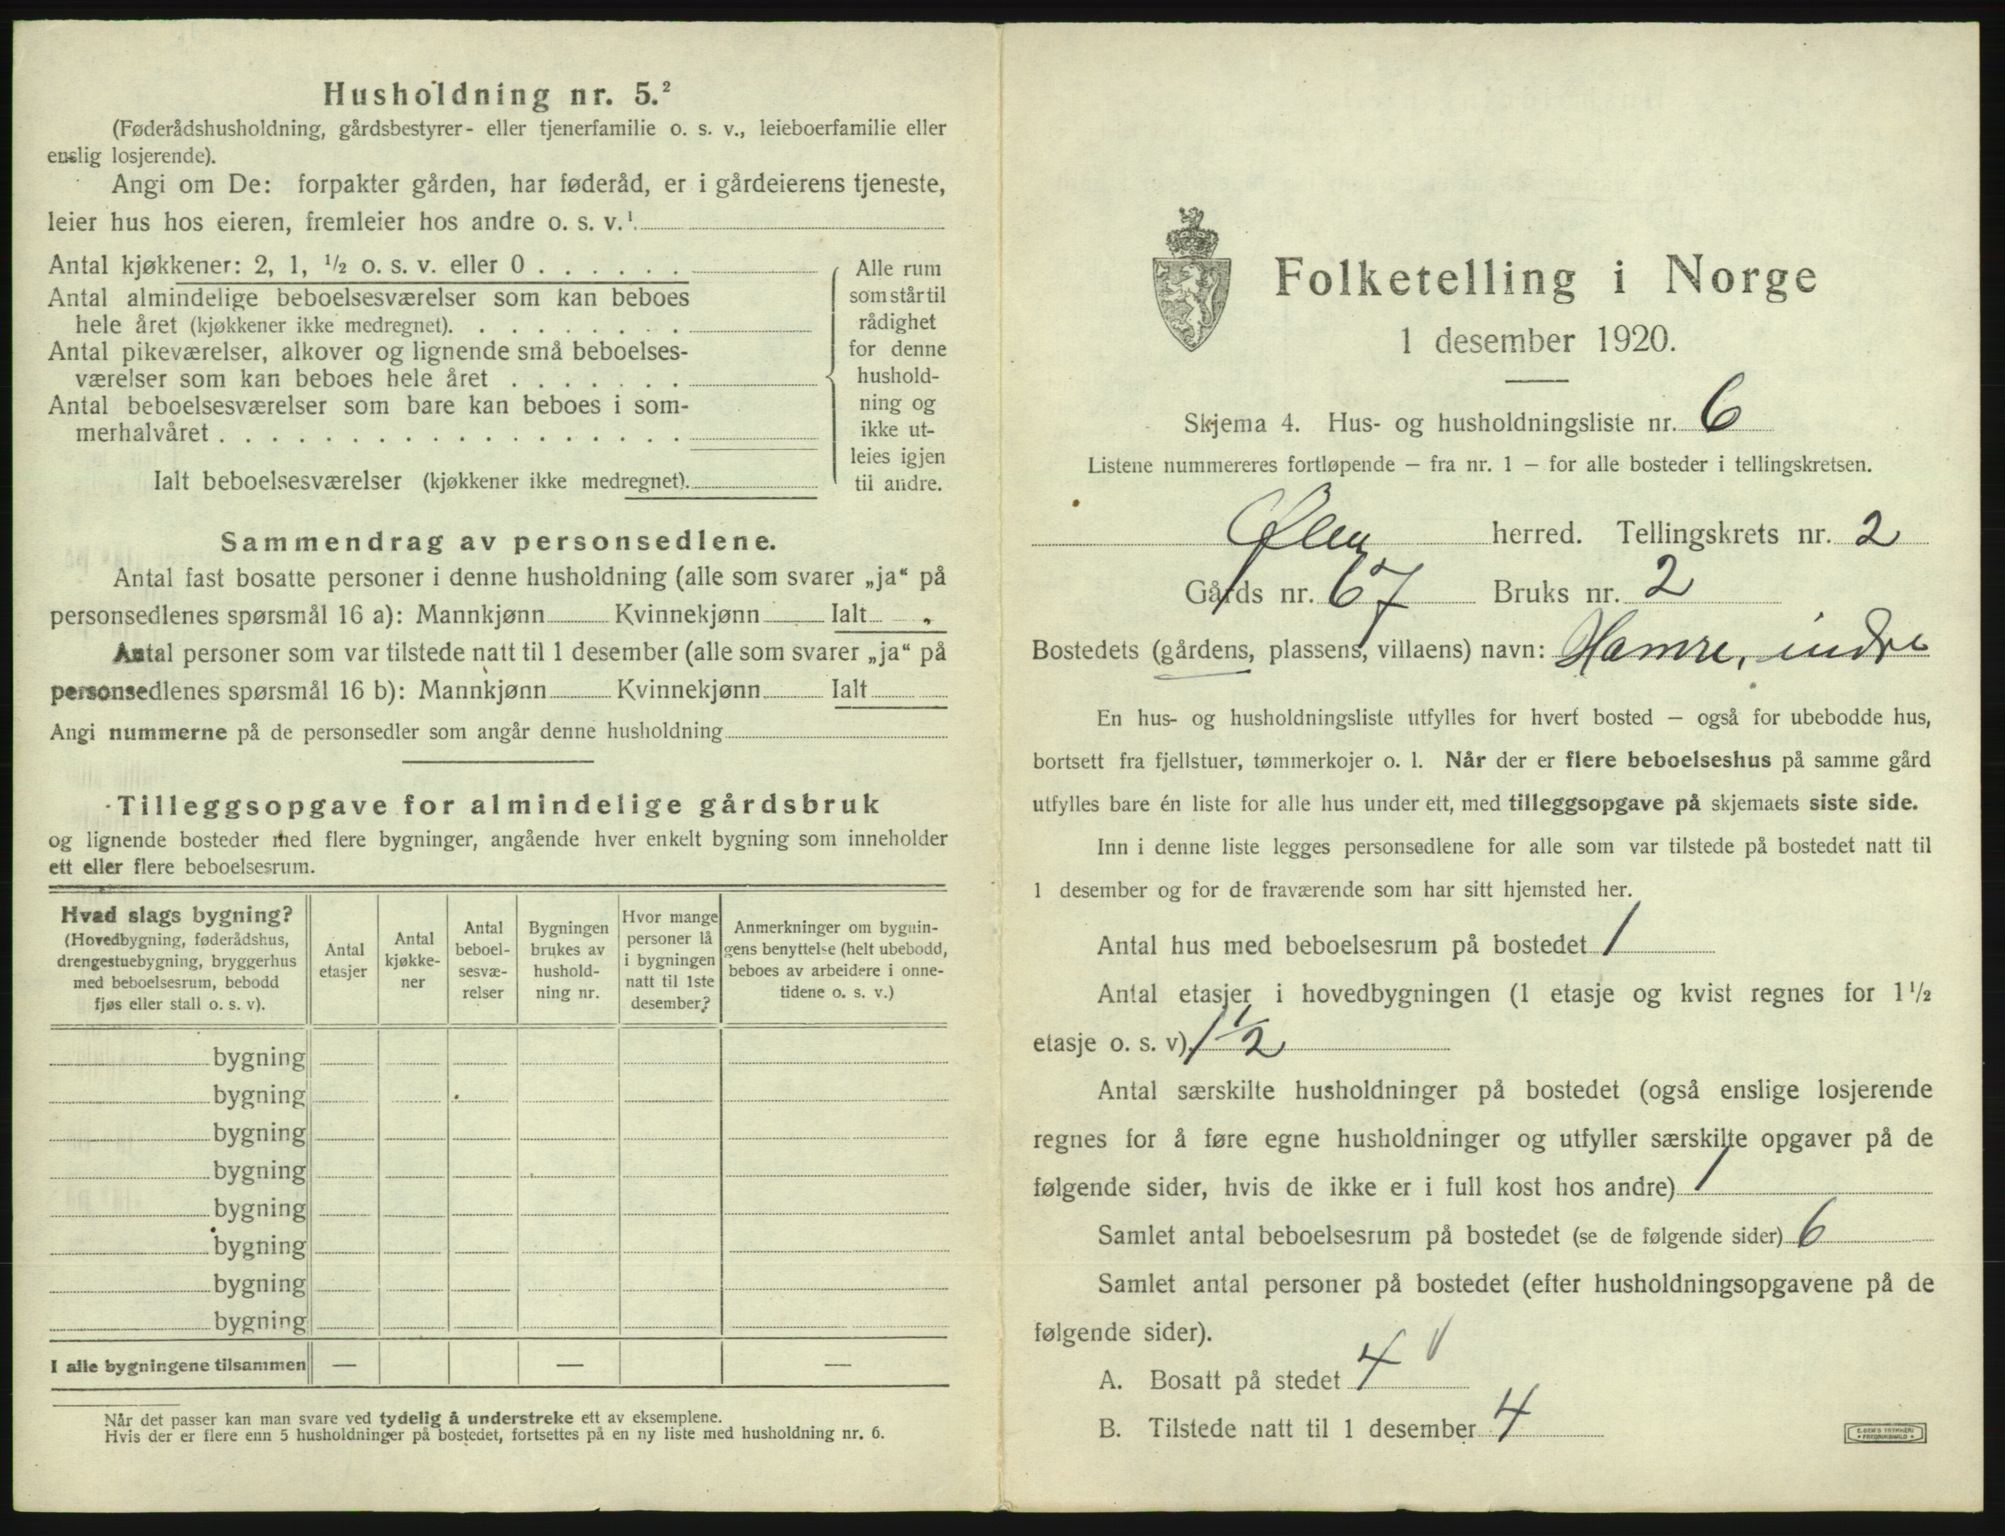 Husholdning nr. 5.²
(Føderådshusholdning, gårdsbestyrer- eller tjenerfamilie o. s. v., leieboerfamilie eller
enslig losjerende).
Angi om De: forpakter gården, har føderåd, er i gårdeierens tjeneste,
leier hus hos eieren, fremleier hos andre o. s. v.¹
Antal kjøkkener: 2, 1, ½ o. s. v. eller 0 . . . . . .
Antal almindelige beboelsesværelser som kan beboes
hele året (kjøkkener ikke medregnet). . . . . . . . .
Antal pikeværelser, alkover og lignende små beboelses-
værelser som kan beboes hele året . . . . . . .
Antal beboelsesværelser som bare kan beboes i som-
merhalvåret . . . . . . . . . . . . . . . . . .
Ialt beboelsesværelser (kjøkkener ikke medregnet).
Alle rum
som står til
rådighet
for denne
hushold-
ning og
ikke ut-
leies igjen
til andre.
Sammendrag av personsedlene.
Antal fast bosatte personer i denne husholdning (alle som svarer „ja“ på
personsedlenes spørsmål 16 a): Mannkjønn Kvinnekjønn Ialt
Antal personer som var tilstede natt til 1 desember (alle som svarer „ja“ på
personsedlenes spørsmål 16 b): Mannkjønn Kvinnekjønn Ialt
Angi nummerne på de personsedler som angår denne husholdning
Tilleggsopgave for almindelige gårdsbruk
og lignende bosteder med flere bygninger, angående hver enkelt bygning som inneholder
ett eller flere beboelsesrum.
Hvad slags bygning?
(Hovedbygning, føderådshus,
drengestuebygning, bryggerhus
med beboelsesrum, bebodd
fjøs eller stall o. s. v).
Antal
etasjer
Antal
kjøkke-
ner
Antal
beboel-
sesvæ-
relser
Bygningen
brukes av
hushold-
ning nr.
Hvor mange
personer lå
i bygningen
natt til 1ste
desember?
Anmerkninger om bygnin-
gens benyttelse (helt ubebodd,
beboes av arbeidere i onne-
tidene o. s. v.)
bygning
bygning
bygning
bygning
bygning
bygning
bygning
bygning
I alle bygningene tilsammen — — —
Når det passer kan man svare ved tydelig å understreke ett av eksemplene.
Hvis der er flere enn 5 husholdninger på bostedet, fortsettes på en ny liste med husholdning nr. 6.
Folketelling i Norge
1 desember 1920.
Skjema 4. Hus- og husholdningsliste nr. 6
Listene nummereres fortløpende – fra nr. 1 – for alle bosteder i tellingskretsen.
Ølen herred. Tellingskrets nr. 2
Gårds nr. 67 Bruks nr. 2
Bostedets (gårdens, plassens, villaens) navn: Hamre, indre
En hus- og husholdningsliste utfylles for hvert bosted – også for ubebodde hus,
bortsett fra fjellstuer, tømmerkojer o. l. Når der er flere beboelseshus på samme gård
utfylles bare én liste for alle hus under ett, med tilleggsopgave på skjemaets siste side.
Inn i denne liste legges personsedlene for alle som var tilstede på bostedet natt til
1 desember og for de fraværende som har sitt hjemsted her.
Antal hus med beboelsesrum på bostedet 1
Antal etasjer i hovedbygningen (1 etasje og kvist regnes for 1½
etasje o. s. v). 1½
Antal særskilte husholdninger på bostedet (også enslige losjerende
regnes for å føre egne husholdninger og utfyller særskilte opgaver på de
følgende sider, hvis de ikke er i full kost hos andre) 1
Samlet antal beboelsesrum på bostedet (se de følgende sider) 6
Samlet antal personer på bostedet (efter husholdningsopgavene på de
følgende sider).
A. Bosatt på stedet 4
B. Tilstede natt til 1 desember 4